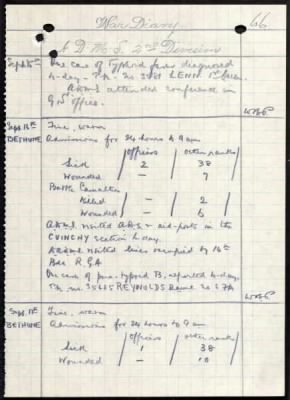 66
War Diary
A D M S, 2nd Division
Sept 15th One case of Typhoid fever diagnosed
to-day - Pte No
ADMS attended conference in
G's office.
Sept. 16th Fine, warm
BETHUNE Admissions for 24 hours to 9 am
Officers Other ranks
Sick 2 38
Wounded - 7
Battle Casualties
Killed - 2
Wounded - 6
ADMS visited ADS & aid-posts in the
CUINCHY section to-day.
visited lines occupied by 16th
Bde R.G.A
One case of para-typhoid B, reported to-day.
Pte no. 35665 REYNOLDS
Sept. 17th Fine, warm
BETHUNE Admissions for 24 hours to 9 am
Officers Other ranks
Sick 1 38
Wounded - 10